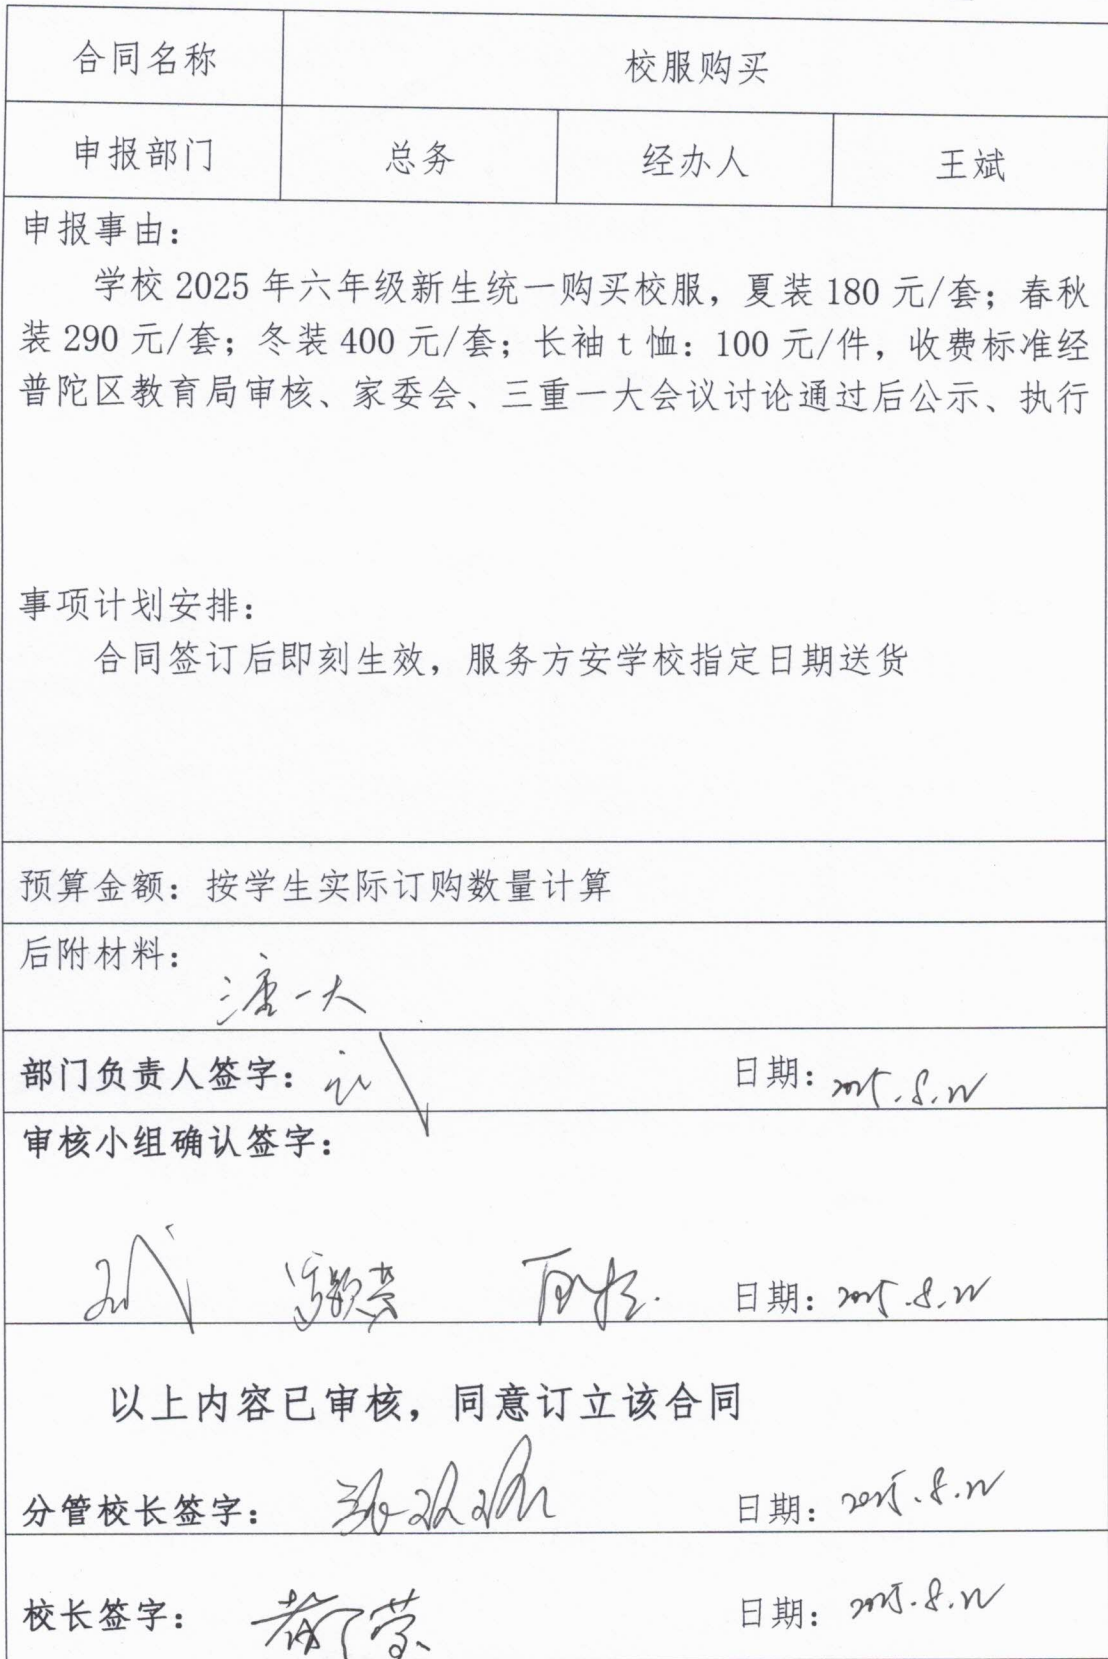 合同名称 校服购买
申报部门 总务 经办人 王斌
申报事由：
学校 2025 年六年级新生统一购买校服，夏装 180 元/套；春秋
装 290 元/套；冬装 400 元/套；长袖 t 恤：100 元/件，收费标准经
普陀区教育局审核、家委会、三重一大会议讨论通过后公示、执行
事项计划安排：
合同签订后即刻生效，服务方安学校指定日期送货
预算金额：按学生实际订购数量计算
后附材料：
三重一大
部门负责人签字： 日期：2025.8.22
审核小组确认签字：
日期：2025.8.22
以上内容已审核，同意订立该合同
分管校长签字： 日期：2025.8.22
校长签字： 日期：2025.8.22